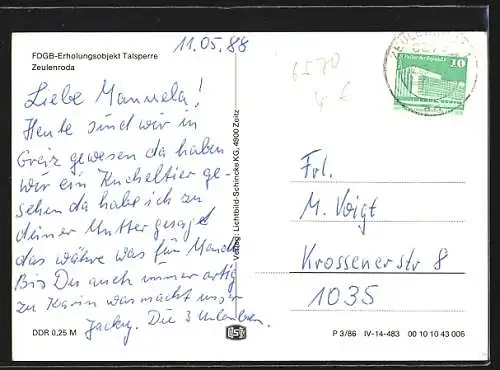 11.05.88
FDGB-Erholungsobjekt Talsperre
Zeulenroda
Liebe Manuela!
Heute sind wir in
Greiz gewesen da haben
wir ein Kucheltier ge-
sehen da habe ich zu
deiner Mutter gesagt
das währe was für Manu
Bis Du auch immer artig
zu Karin was macht unser
Jacky. Die 3 Urlauber.
DDR 0,25 M
Verlag: Lichtbild-Schincke KG, 4900 Zeitz
6570
4 €
ZEULENRODA
10
Frl.
M. Voigt
Krossenerstr 8
1035
P 3/86 IV-14-483 00 10 10 43 006